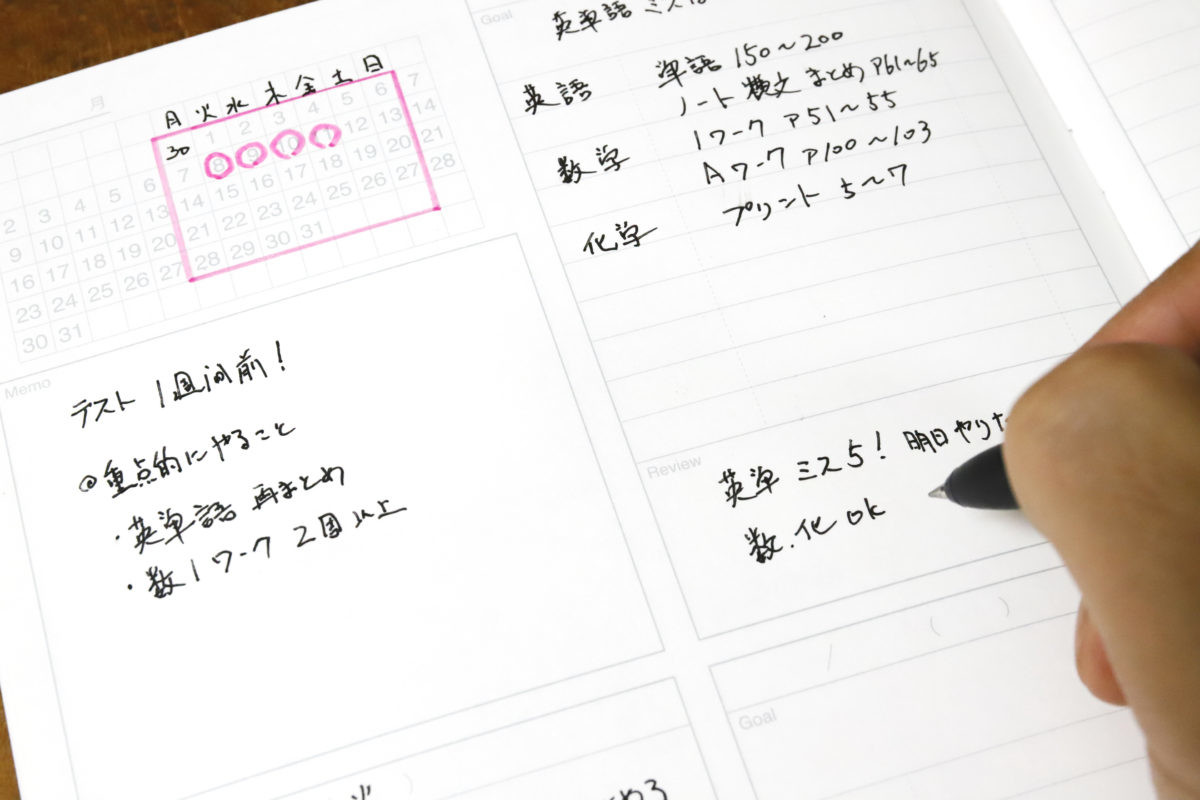 月
月 火 水 木 金 土 日
1 2 3 4 5 6 7
30
2 3 4 5 6 7 8 9 10 12 13 14
9 10 11 12 13 14 15 16 17 18 19 20 21
16 17 18 19 20 21 22 23 24 25 26 27 28
23 24 25 26 27 28 29 30 31
30 31
Memo
テスト 1週间前!
◎重点的にやること
・英単語 再まとめ
・数1ワーク 2周以上
Goal
英単語 ミス
英語 単語 150〜200
ノート 構文 まとめ P61〜65
数学 1ワーク P51〜55
Aワーク P100〜103
化学 プリント 5〜7
Review
英単 ミス5! 明日 やり
数.化 OK
/ ( )
Goal